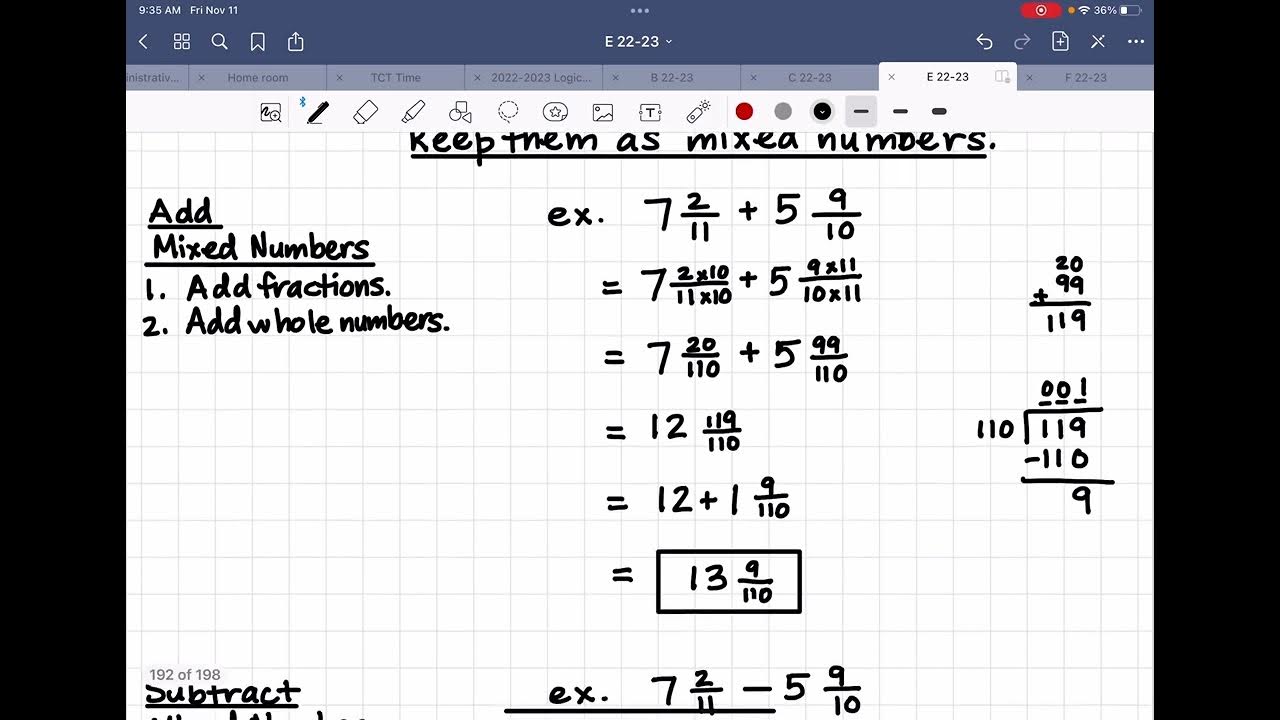 9:35 AM Fri Nov 11
36%
E 22-23
inistrativ... × Home room × TCT Time × 2022-2023 Logic... × B 22-23 × C 22-23 × E 22-23 × F 22-23
T
Keep them as mixed numbers.
Add
Mixed Numbers
1. Add fractions.
2. Add whole numbers.
ex. 7 2/11 + 5 9/10
= 7 2×10/11×10 + 5 9×11/10×11
= 7 20/110 + 5 99/110
= 12 119/110
= 12 + 1 9/110
= 13 9/110
20
+ 99
119
001
110 119
-110
9
192 of 198
Subtract
ex. 7 2/11 - 5 9/10